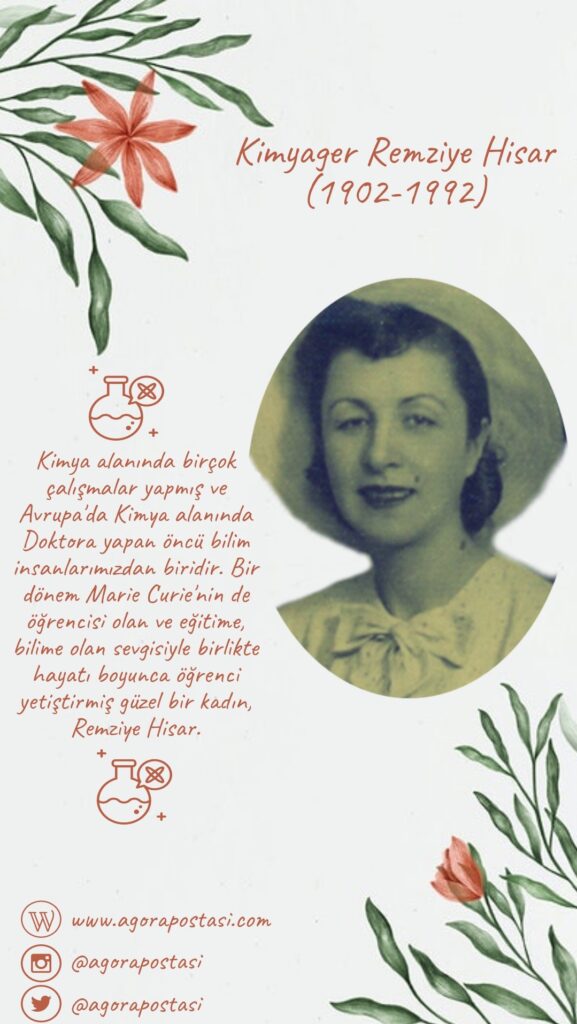 Kimyager Remziye Hisar
(1902-1992)
Kimya alanında birçok
çalışmalar yapmış ve
Avrupa'da Kimya alanında
Doktora yapan öncü bilim
insanlarımızdan biridir. Bir
dönem Marie Curie'nin de
öğrencisi olan ve eğitime,
bilime olan sevgisiyle birlikte
hayatı boyunca öğrenci
yetiştirmiş güzel bir kadın,
Remziye Hisar.
W www.agorapostasi.com
@agorapostasi
@agorapostasi